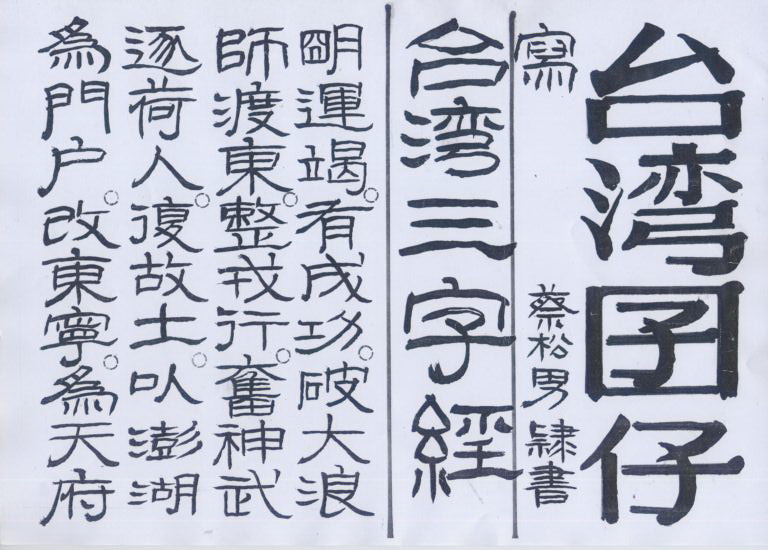 台湾囝仔
寫 蔡松男 隸書
台湾三字經
朙運竭。有成功。破大浪
師渡東。整戎行。奮神武
逐荷人。復故土。以澎湖
為門户。改東寧。為天府